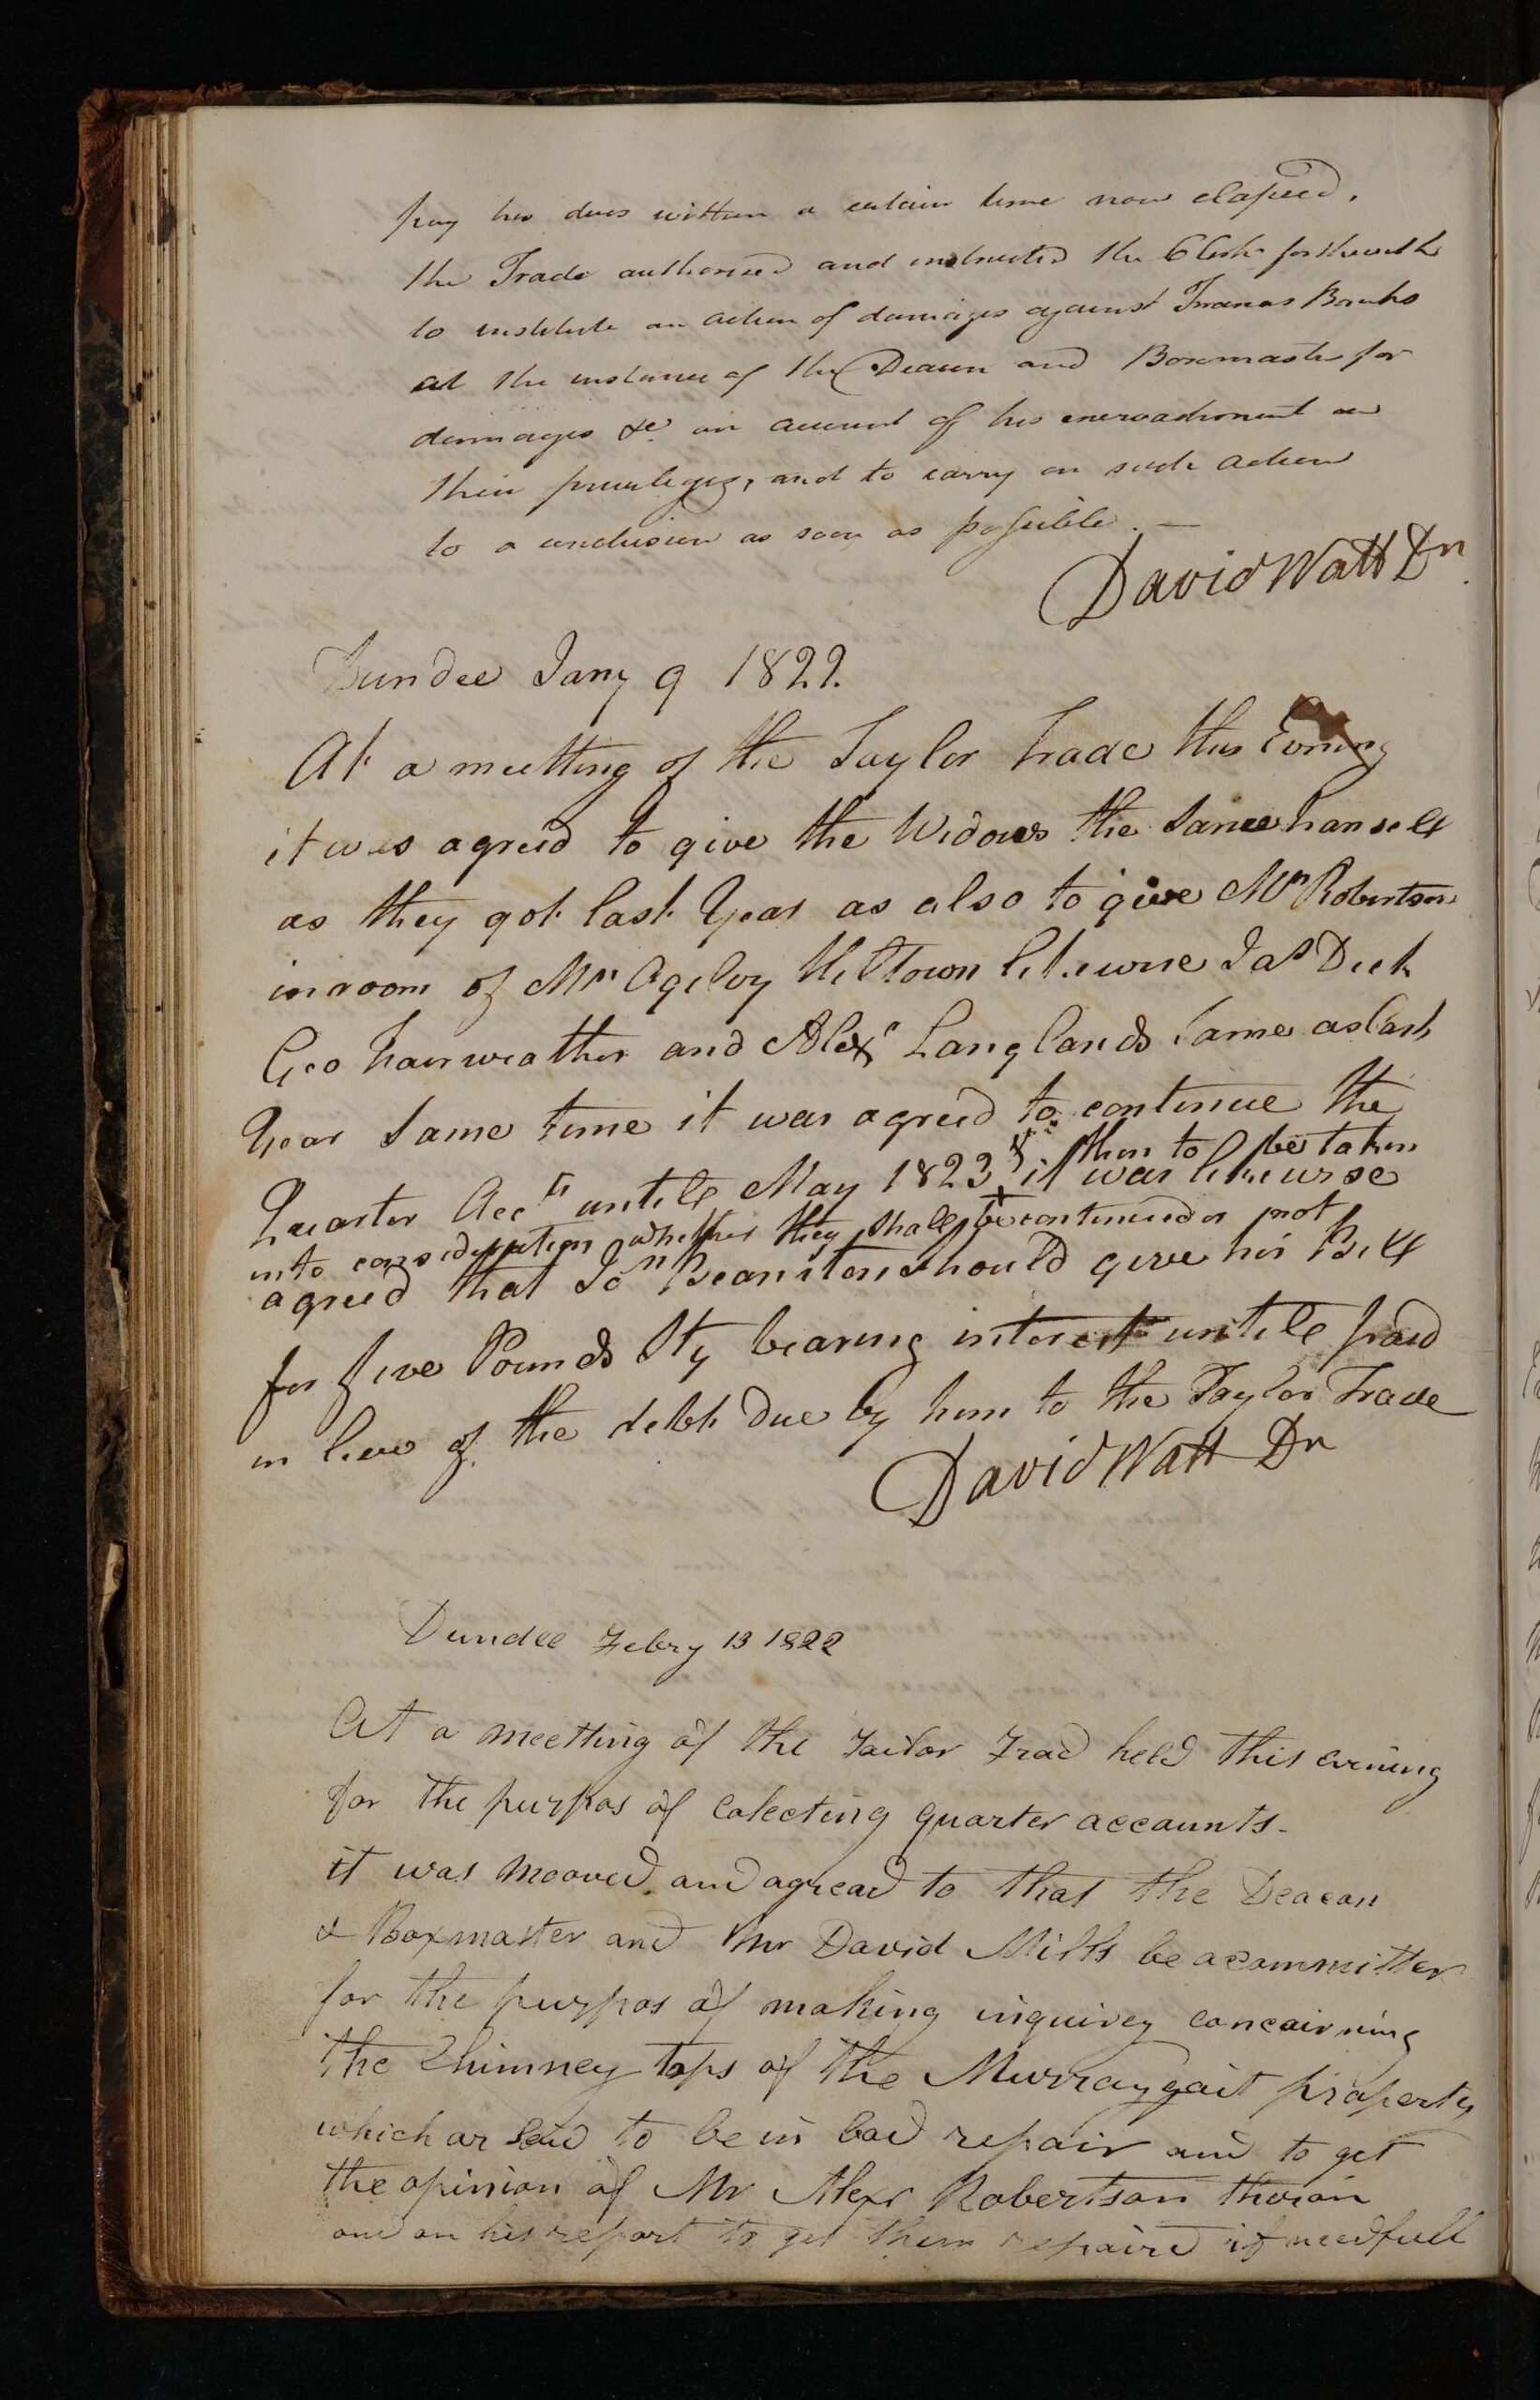 pay his dues within a certain time now elapsed.
the Trade authorised and instructed the Clerk forthwith
to institute an action of damages against Francas Banks
at the instance of the Deacon and Boxmaster for
damages &c on account of his encroachment on
their privileges, and to carry on such action
to a conclusion as soon as possible. —
David Watt Dn
Dundee Jany 9 1822.
At a meetting of the Taylor Trade this Evning
it was agreed to give the Widows the same hansell
as they got last Year as also to give Mrs Robertson
in room of Mrs Ogelvy Hiltown likewise Jas Dick
Geo Fairweather and Alexr Langlands same as last
Year same time it was agreed to continue the
Quarter Accts untill May 1823 then to be taken
into consideration whither they shall be continued or not
+ it was likewise
agreed that Jon Beanston should give his Bill
for five Pounds Stg bearing interest untill paid
in liew of the debt due by him to the Taylor Trade
David Watt Dn
Dundee Febry 13 1822
At a meetting of the Tailor Trad held this evening
for the purpos of Colecting quarter accaunts-
it was mooved and agread to that the Deacon
& Boxmaster and Mr David Mills be a committer
for the purpos of making inquirey concairning
the Chimney tops of the Murraygait property
which ar said to be in bad repair and to get
the opinion of Mr Alexr Robertson thoion
and on his report to get them repaired if needfull